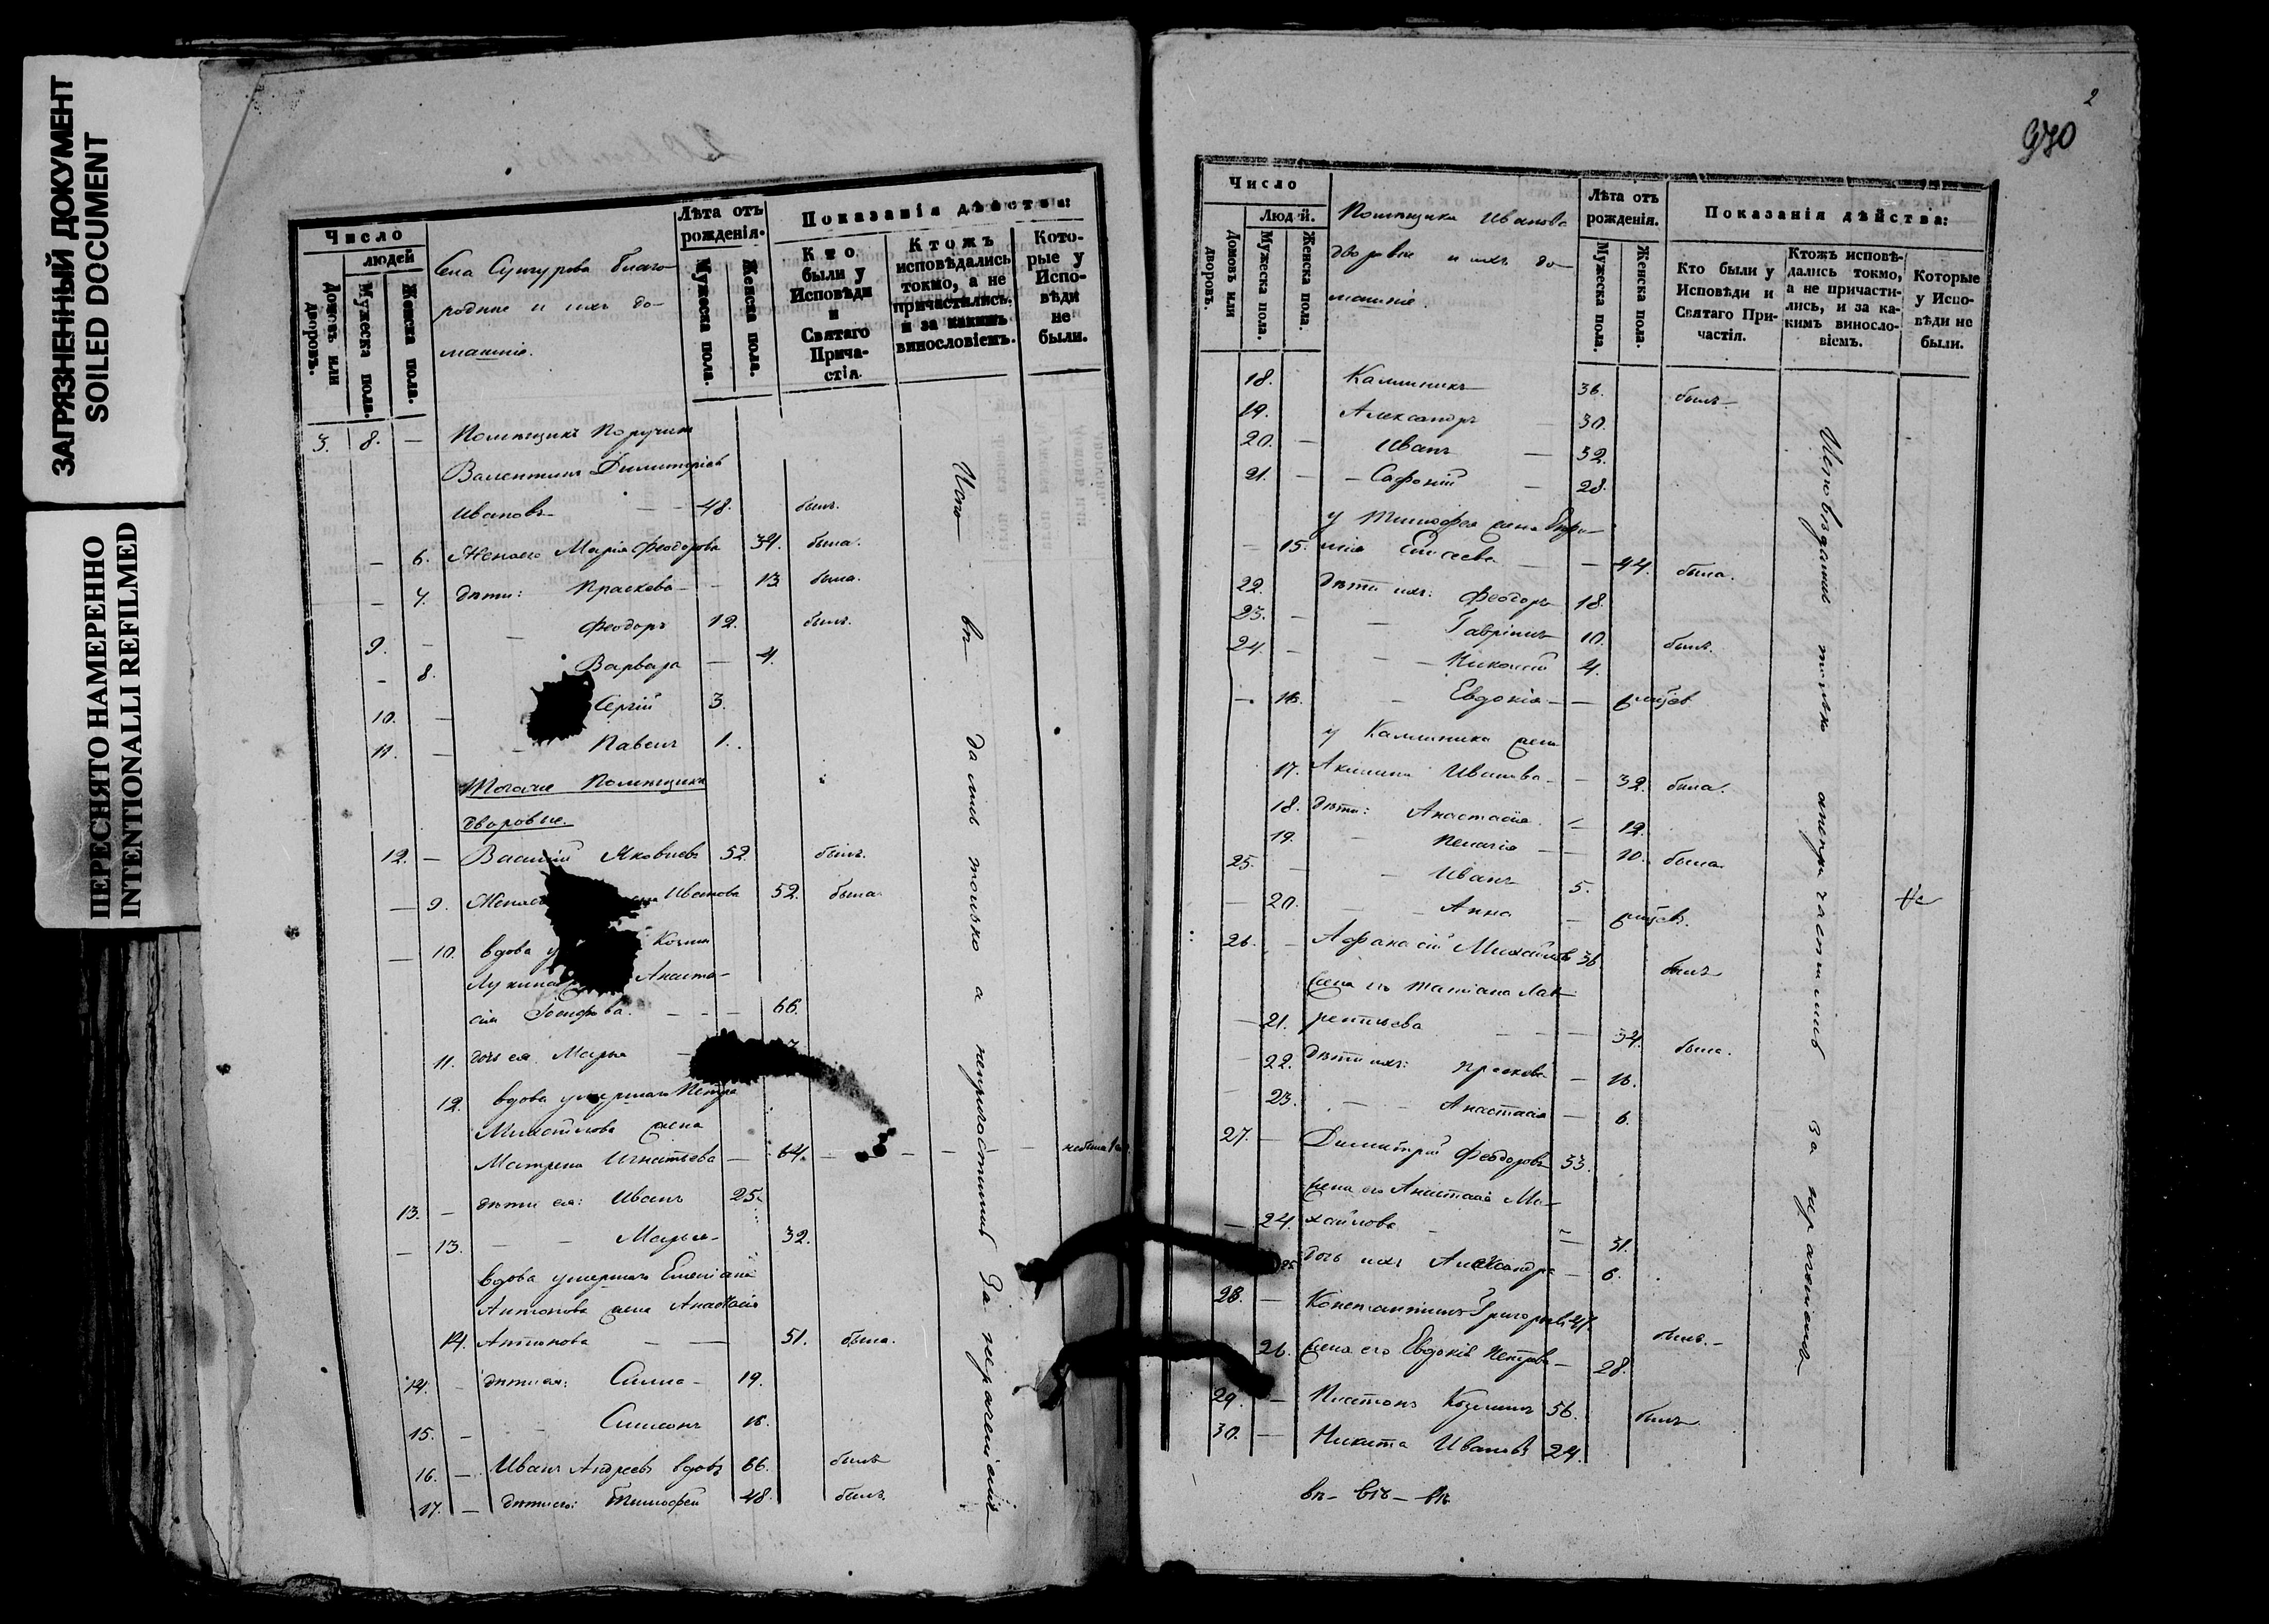 ЗАГРЯЗНЕННЫЙ ДОКУМЕНТ
SOILED DOCUMENT
ПЕРЕСНЯТО НАМЕРЕННО
INTENTIONALLI REFILMED
Число
людей
Домовъ или дворовъ.
Мужеска пола.
Женска пола.
Села Сунгурова благо-
родные и ихъ до-
машніе.
Лѣта отъ рожденія.
Мужеска пола.
Женска пола.
Показанія дѣйства:
Кто были у Исповѣди и Святаго Прича- стія.
Ктожъ исповѣдались токмо, а не причастились. и за какимъ винословіемъ.
Кото- рые у Испо- вѣди не были.
3. 8. — Помѣщикъ Поручикъ
Валентинъ Димитріевъ
Ивановъ — 48. былъ.
— 6. Жена его Марія Феодорова 34. была.
— 7. дѣти: Прасковья — 13. была.
9. — Феодоръ 12. былъ.
— 8. Варвара — 4.
10. — Сергій 3.
11. — Павелъ 1.
Тогоже Помѣщика
дворовые.
12. — Василій Яковлевъ 52. былъ.
— 9. Жена его Иванова 52. была.
— 10. вдова Козмы
Лукина Анаста-
сія — 66.
11. дочь ея Марья —
12. вдова умершаго Петра
Михайлова жена
Матрена Игнатьева — 64. —
13. — дѣти ея: Иванъ 25.
— 13. — Марья 32.
вдова умершаго Емеліана
Антонова жена Анастасія
14. Антонова — 51. была.
14. — дѣти ея: 19.
15. — Симеонъ 16.
16. — Иванъ Андреевъ вдовъ 66. былъ
17. — дѣти его: Тимофей 48. былъ.
Испо- вѣ- дались только а непричастились За нераченіемъ
2
970
Число
Людей.
Домовъ или дворовъ.
Мужеска пола.
Женска пола.
Помѣщика Иванова
дворовые и ихъ до-
машніе.
Лѣта отъ рожденія.
Мужеска пола.
Женска пола.
Показанія дѣйства:
Кто были у Исповѣди и Святаго При- частія.
Ктожъ исповѣ- дались токмо, а не причасти- лись, и за ка- кимъ винословіемъ.
Которые у Испо- вѣди не были.
18. Каллиникъ 36. былъ
19. Александръ — 30.
20. — Иванъ — 32.
21. — Сафоній — 28.
у Тимофея жена
— 15. Елисеева — 44. была.
22. дѣти ихъ: Феодоръ 18.
23. — Гавріилъ 10. былъ.
24. — Николай 4.
— 16. — Евдокія —
у Каллиника жена
17. Акилина Иванова — 32. была.
18. дѣти: Анастасія — 12.
19. — Пелагія — 10. была.
25. — Иванъ 5.
— 20. — Анна —
26. — Афанасій Михайловъ 36 былъ
жена его Татіана Лав-
— 21. рентьева — 34. была.
— 22. дѣти ихъ: Прасковья — 16.
— 23. — Анастасія — 6.
27. — Димитрій Феодоровъ 33.
жена его Анастасія Ми-
— 24. хайлова — 31.
25. дочь ихъ Александра — 6.
28. — Константинъ Григорьевъ былъ. —
26. жена его Евдокія Петрова — 28.
29. — Платонъ Козминъ 56. былъ
30. — Никита Ивановъ 24.
Исповѣдались только анепричастились за нераченіемъ
вѣ- вѣ- вѣ